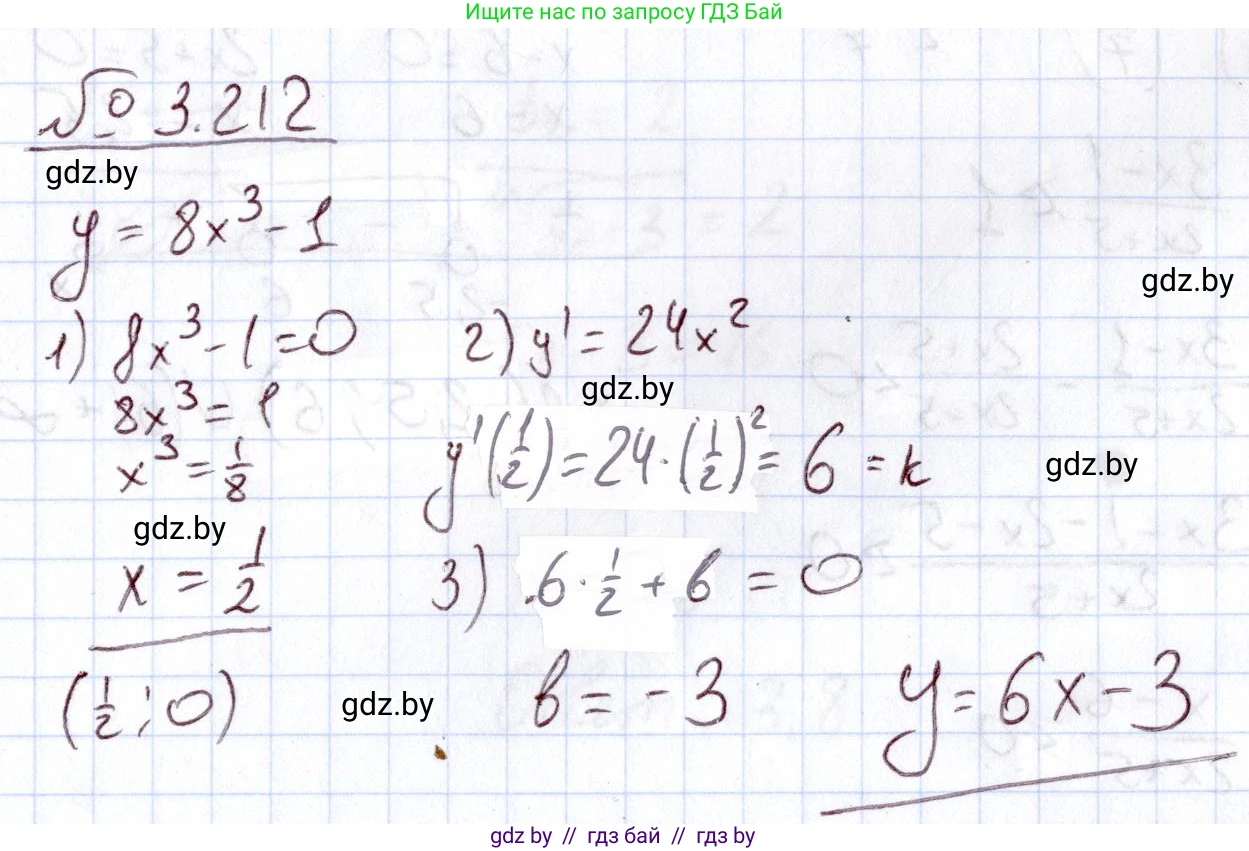 Ищите нас по запросу ГДЗ Бай
№ 3.212
gdz.by
y = 8x³ - 1
gdz.by
1) 8x³ - 1 = 0
8x³ = 1
x³ = 1/8
gdz.by
x = 1/2
(1/2; 0)
2) y' = 24x²
gdz.by
y'(1/2) = 24·(1/2)² = 6 = k
gdz.by
3) 6·1/2 + b = 0
gdz.by
b = -3
y = 6x - 3
gdz.by // гдз бай // гдз by